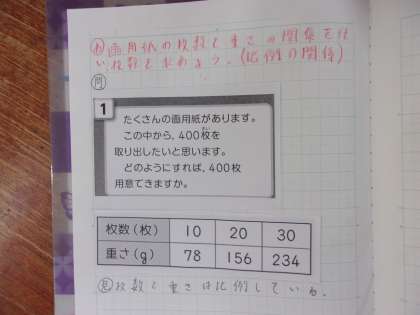 め 画用紙の枚数と重さの関係を使
い、枚数を求めよう。(比例の関係)
問
1
たくさんの画用紙があります。
この中から、400枚を
まい
取り出したいと思います。
どのようにすれば、400枚
用意できますか。
枚数(枚) 10 20 30
重さ(g) 78 156 234
見 枚数と重さは比例している。